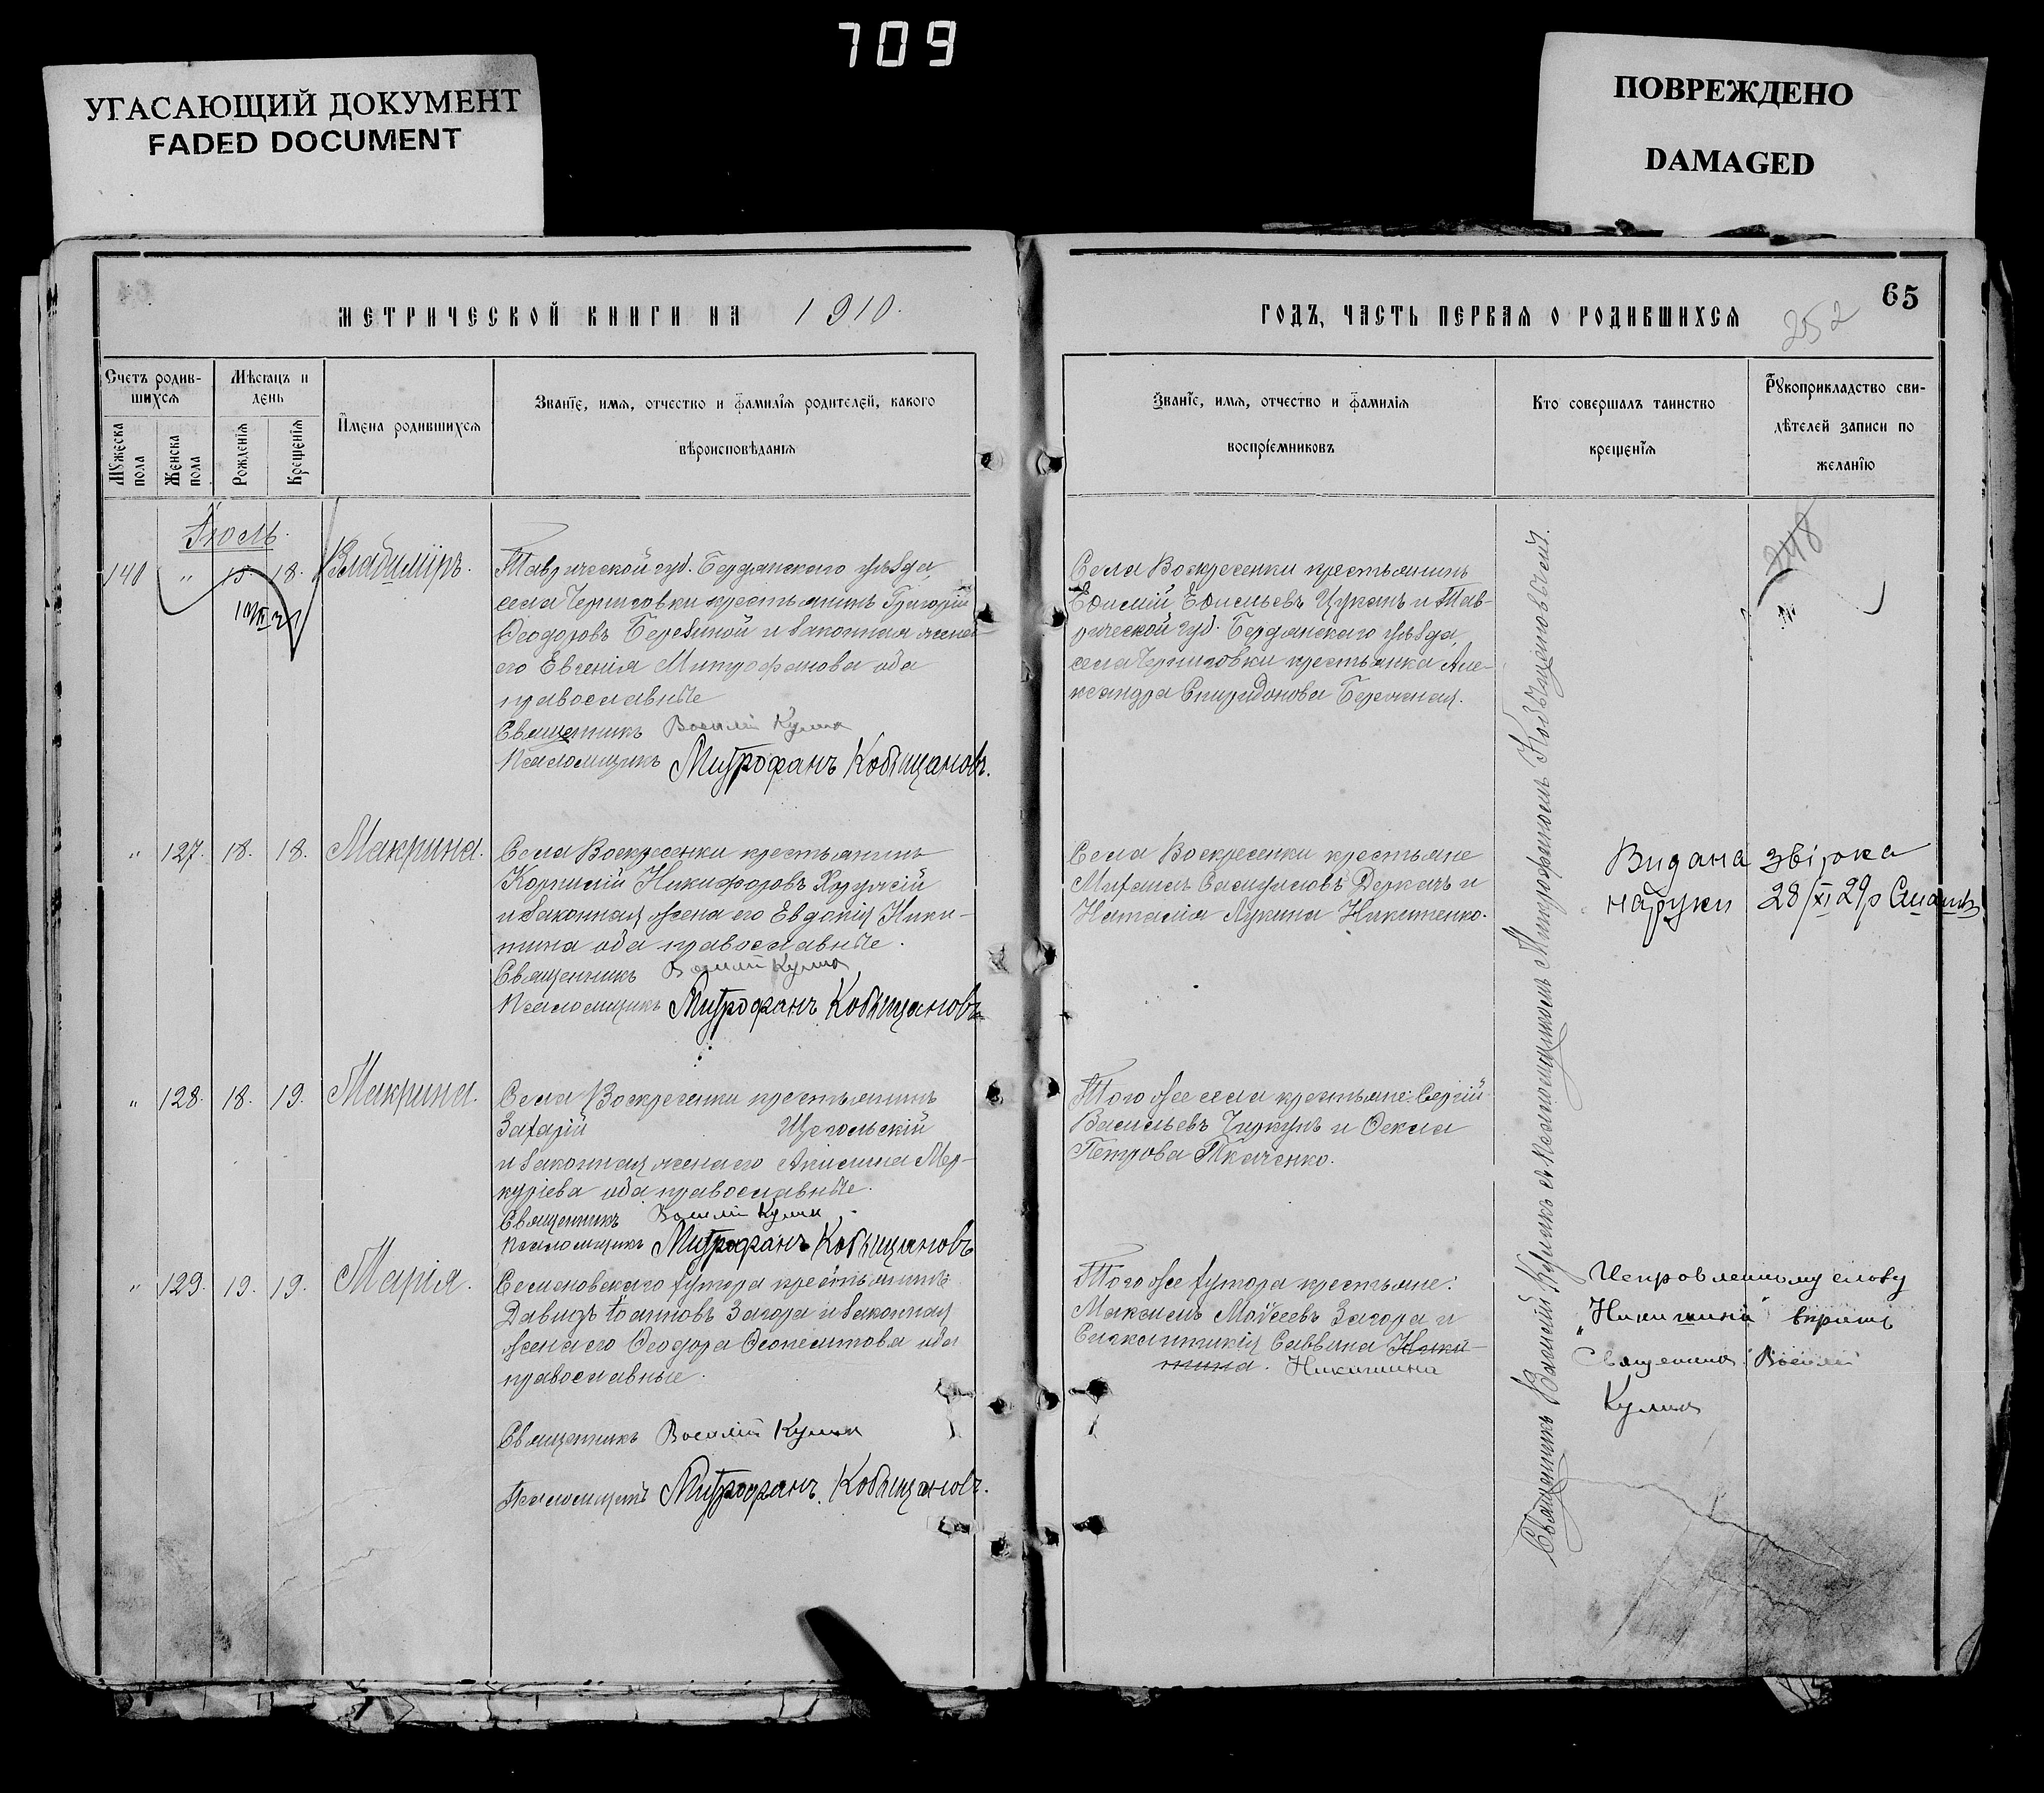 709
УГАСАЮЩИЙ ДОКУМЕНТ
FADED DOCUMENT
ПОВРЕЖДЕНО
DAMAGED
МЕТРИЧЕСКОЙ КНИГИ НА 1910.
Счетъ родив-
шихся
Мѣсяцъ и
день
Мужеска
пола
Женска
пола
Рожденія
Крещенія
Имена родившихся
Званіе, имя, отчество и фамилія родителей, какого
вѣроисповѣданія
Іюль.
140 " 15. 18. Владиміръ.
Таврической губ. Бердянскаго уѣзда,
села Черниговки крестьянинъ Григорій
Ѳеодоровъ и законная жена
его Евгенія Митрофанова оба
православные
Священникъ Василій Куликъ
Псаломщикъ Митрофанъ Кобыщановъ.
" 127. 18. 18. Макрина.
Села Воскресенки крестьянинъ
Корнилій Никифоровъ
и законная жена его Евдокія Ники-
тина оба православные.
Священникъ Василій Куликъ
Псаломщикъ Митрофанъ Кобыщановъ
" 128. 18. 19. Макрина.
Села Воскресенки крестьянинъ
Захарій Щегольскій
и законная жена его Акилина Мер-
куріева оба православные.
Священникъ Василій Куликъ
Псаломщикъ Митрофанъ Кобыщановъ
" 129. 19. 19. Марія.
Семеновскаго хутора крестьянинъ
Давидъ Іоанновъ Загора и законная
жена его Ѳеодора Ѳеопемптова оба
православные.
Священникъ Василій Куликъ
Псаломщикъ Митрофанъ Кобыщановъ.
65
252
ГОДЪ, ЧАСТЬ ПЕРВАЯ О РОДИВШИХСЯ
Званіе, имя, отчество и фамилія
воспріемниковъ
Кто совершалъ таинство
крещенія
Рукоприкладство сви-
дѣтелей записи по
желанію
248
Села Воскресенки крестьянинъ
Цуканъ и Тав-
рической губ. Бердянскаго уѣзда,
села Черниговки крестьянка Але-
ксандра Спиридонова Бережная.
Села Воскресенки крестьяне
Михаилъ Деркачъ и
Наталія Лукина Никитенко.
Того же села крестьяне: Сергій
Васильевъ Чиркунъ и Ѳекла
Петрова Ткаченко.
Того же хутора крестьяне:
Максимъ Моѵсеевъ Загора и
Синклитикія Саввина Ники-
тина. Никишина
Священникъ Василій Куликъ съ псаломщикомъ Митрофаномъ Кобыщановымъ.
Видана звірка
на руки 28/XI 29р
Исправленному слову
"Никишина" вѣрить
Священникъ Василій
Куликъ